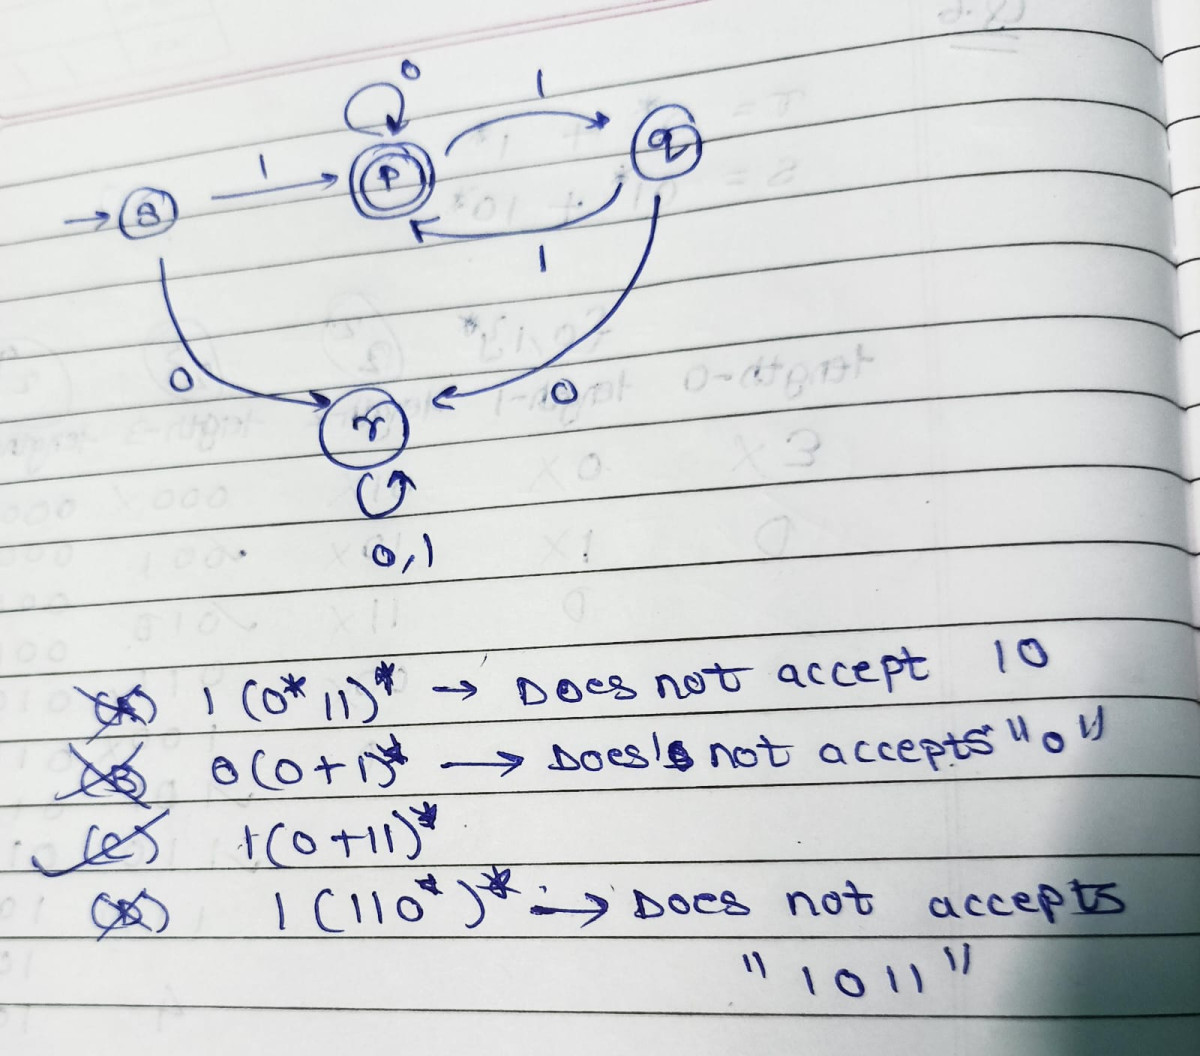 0
1
q
1
P
s
1
0
0
r
0,1
(A) 1 (0* 11)* → Does not accept 10
(B) 0(0+1)* → Does's not accepts "0"
(C) 1(0+11)*
(D) 1 (110*)* → Does not accepts
"1011"